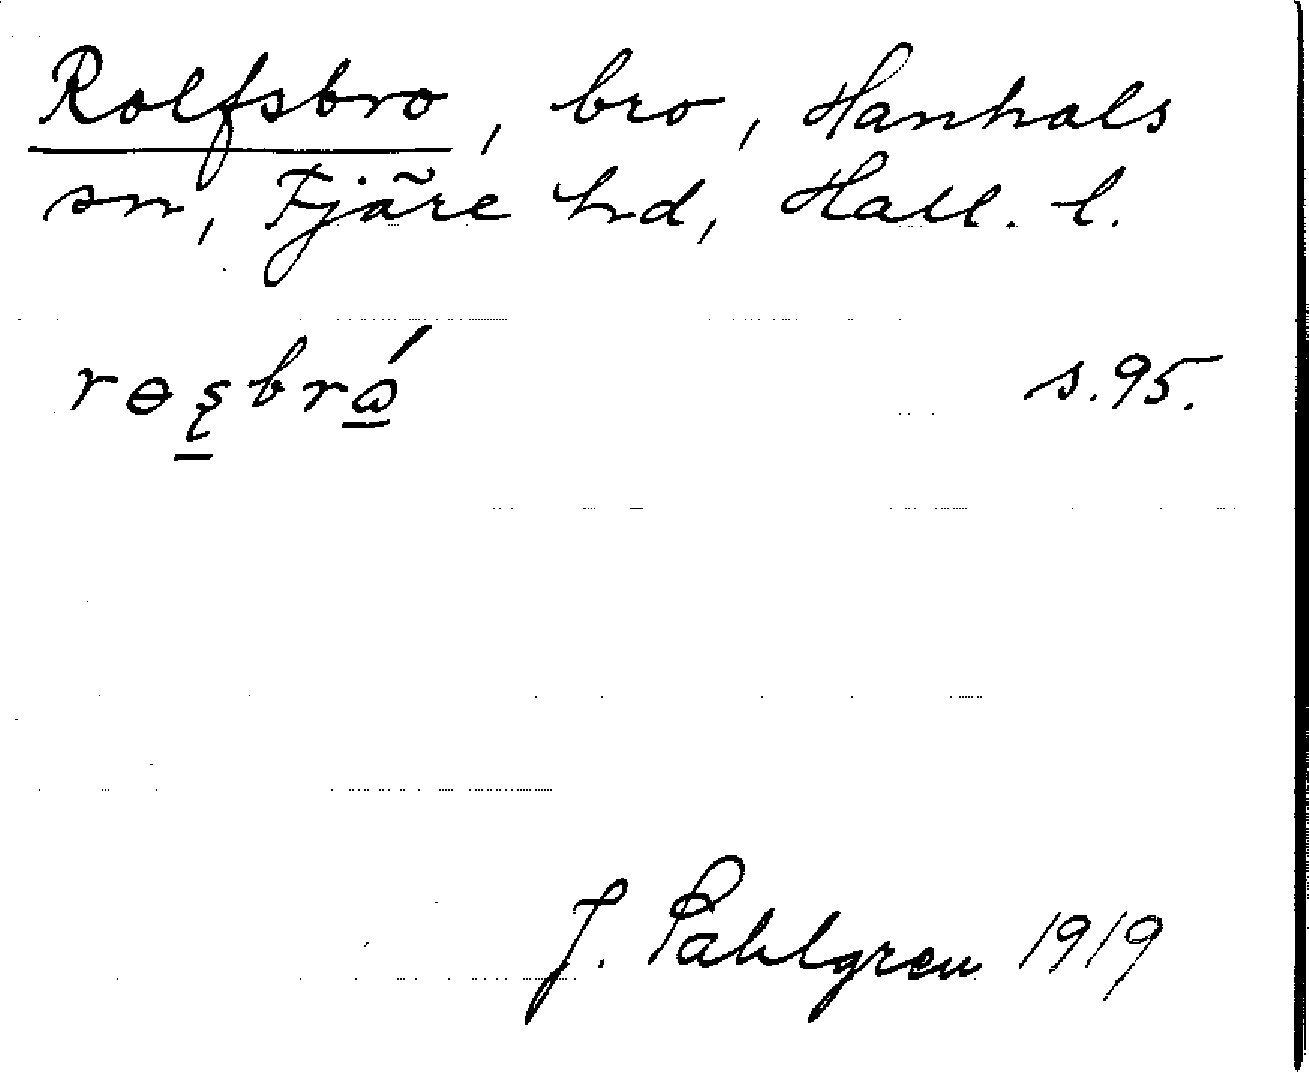 Rolfsbro, bro, Hanhals
sn, Fjäre hd, Hall. l.
s.95.
J. Pahlgren 1919